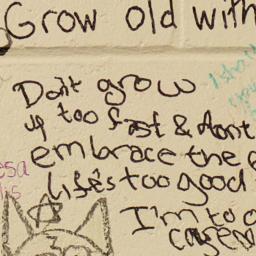 Grow old with
Don't grow
up too fast & dont
embrace the
life's too good
I'm to